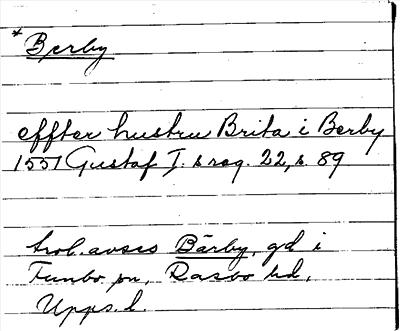 * Berby
effter hustru Brita i Berby
1551 Gustaf I:s reg. 22, s. 89
trol. avses Bärby, gd i
Funbo sn, Rasbo hd,
Upps. l.